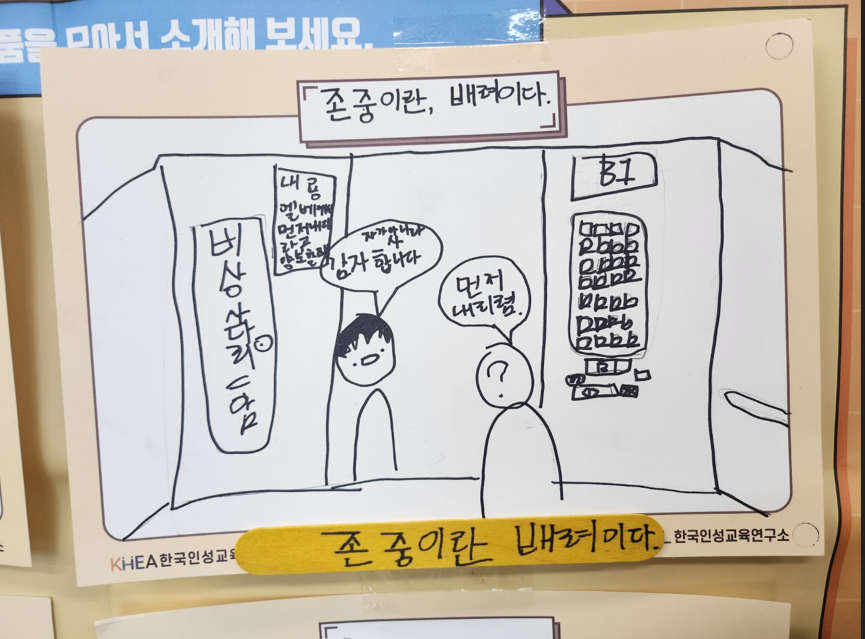 품을 모아서 소개해 보세요.
존중이란, 배려이다.
B1
내용
엘베에서
먼저내리
라고
양보할때
비
상
사다
리
자가아니라
사
감자 합니다
먼저
내리렴.
?
존중이란 배려이다.
KHEA한국인성교육
한국인성교육연구소